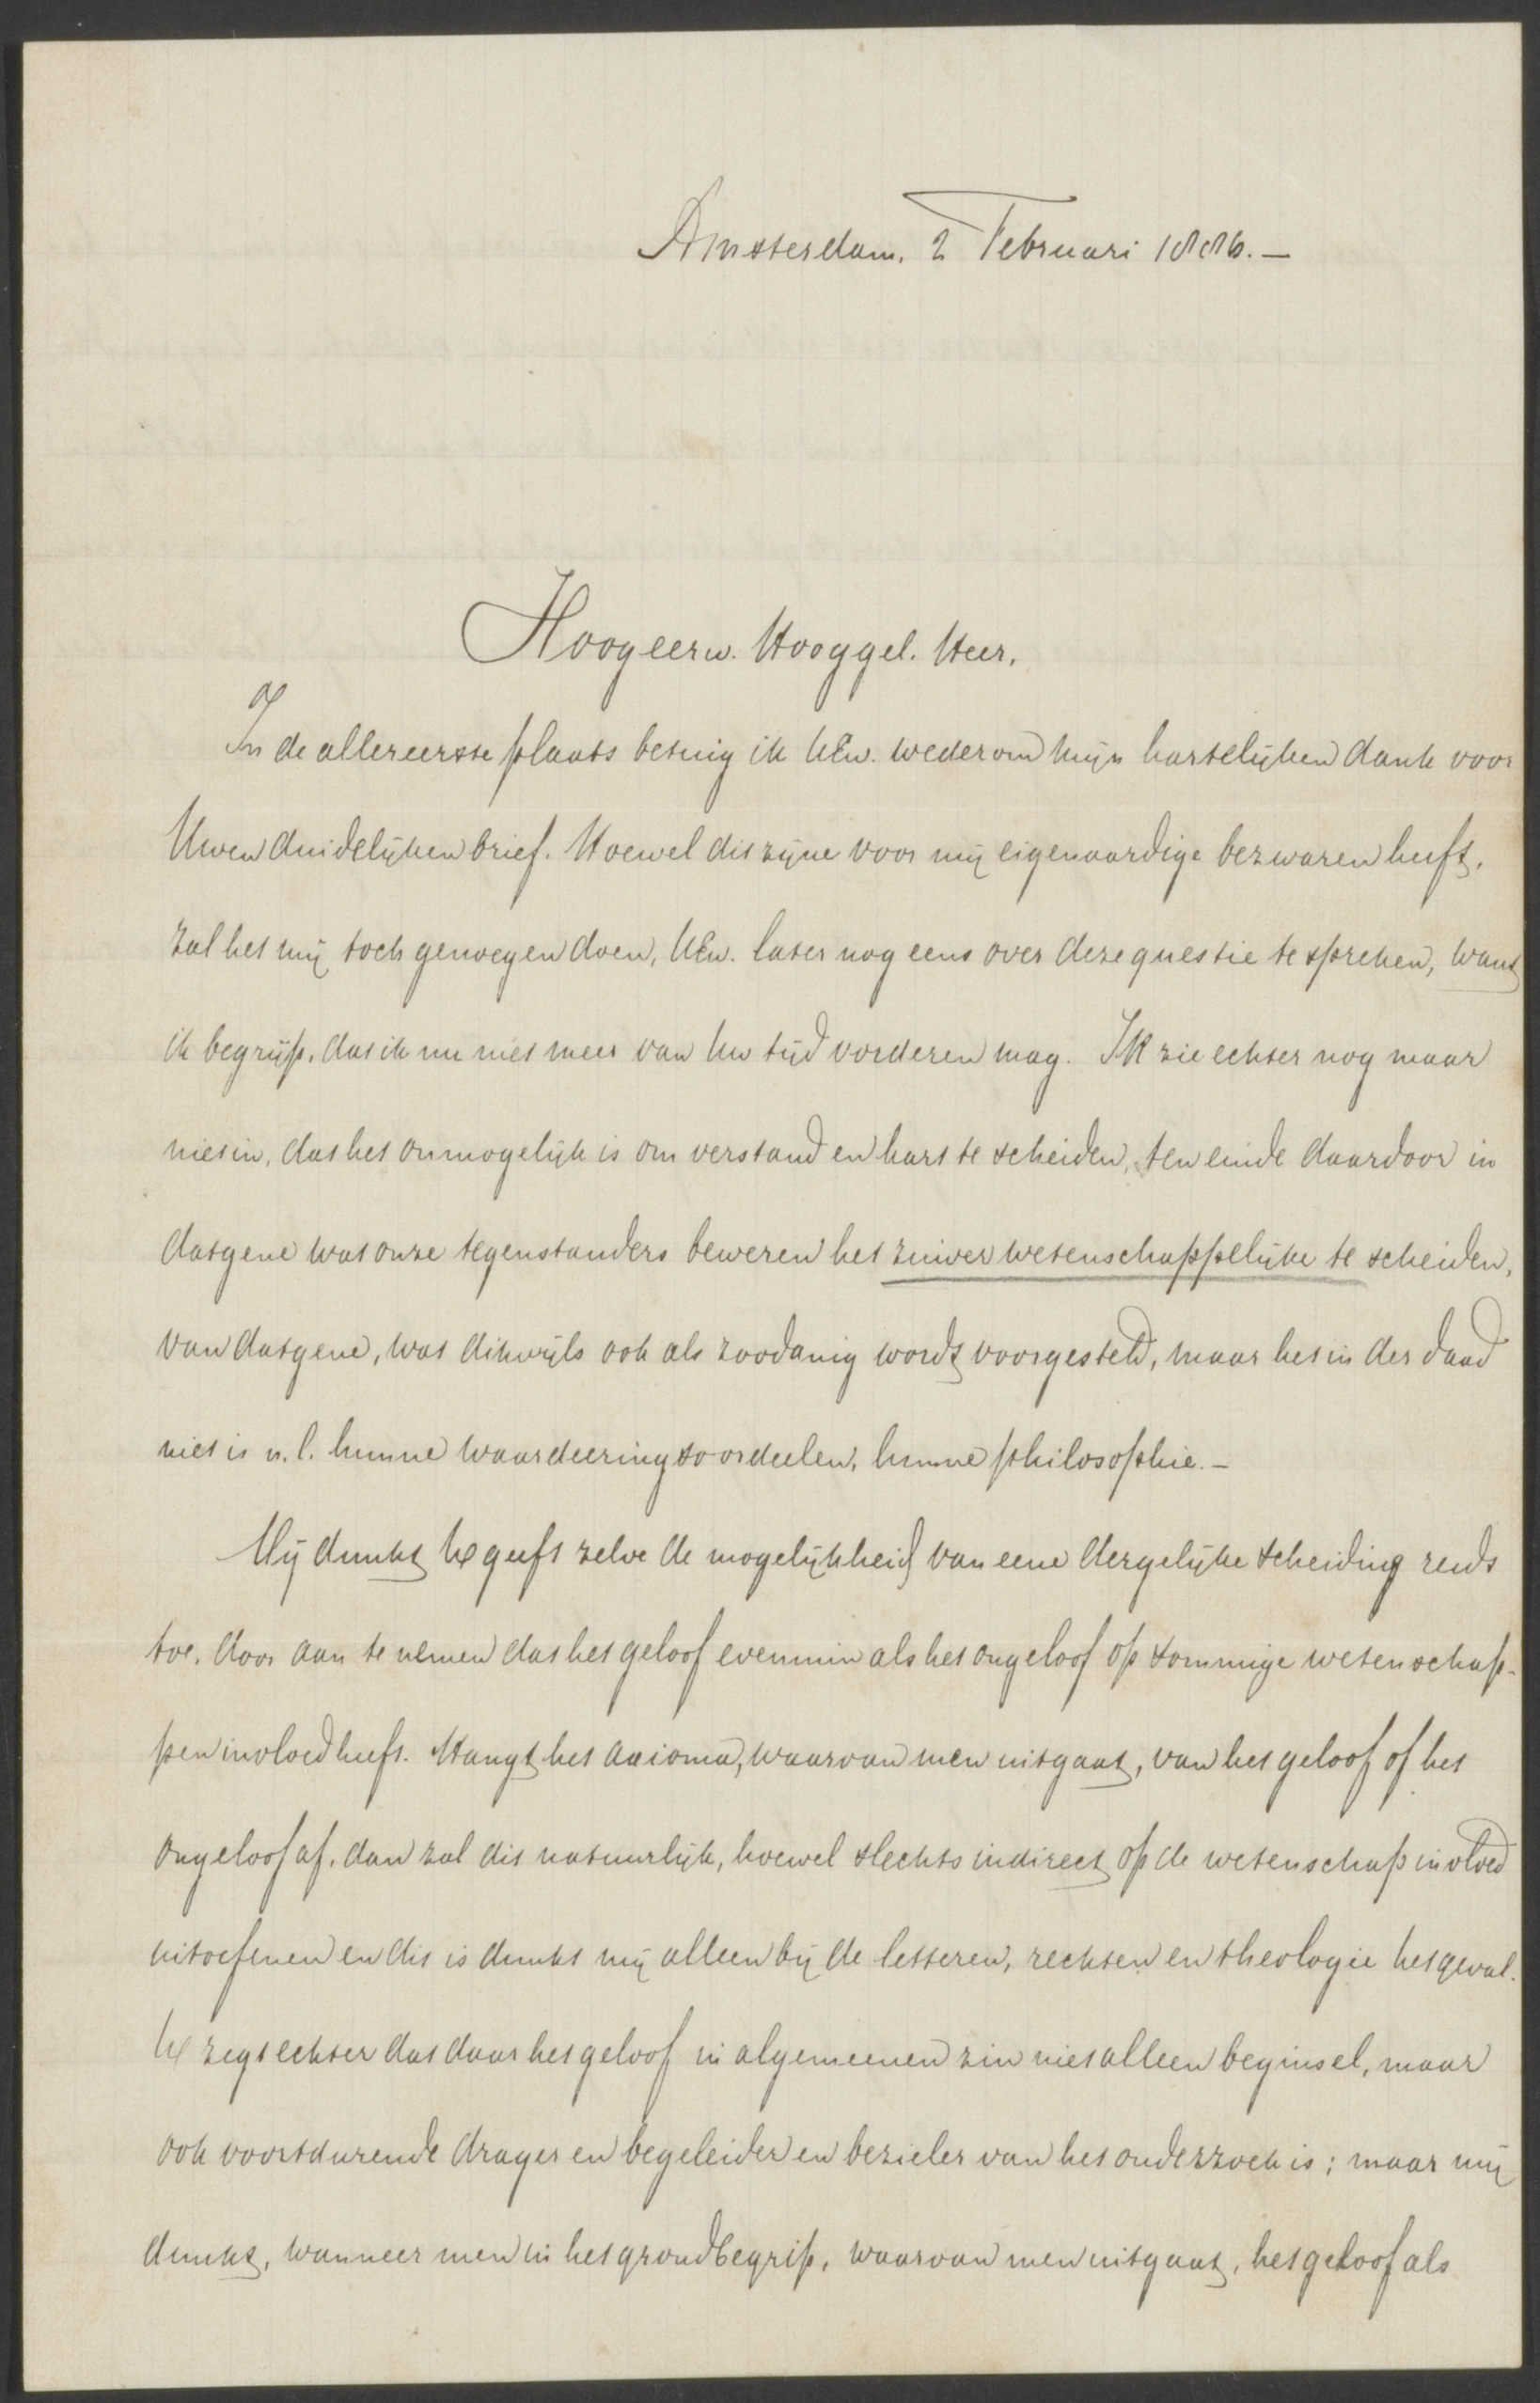 Amsterdam, 2 Februari 1886.—
Hoogeerw. Hooggel. Heer,
In de allereerste plaats betuig ik UEw. wederom mijn hartelijken dank voor
Uwen duidelijken brief. Hoewel dit zijne voor mij eigenaardige bezwaren heeft,
zal het mij toch genoegen doen, UEw. later nog eens over deze questie te spreken, want
ik begrijp, dat ik nu niet meer van Uw tijd vorderen mag. Ik zie echter nog maar
niet in, dat het onmogelijk is om verstand en hart te scheiden, ten einde daardoor in
datgene wat onze tegenstanders beweren het zuiver wetenschappelijke te scheiden,
van datgene, wat dikwijls ook als zoodanig wordt voorgesteld, maar het in der daad
niet is n.l. hunne waardeeringsoordeelen, hunne philosophie.—
Mij dunkt U geeft zelve de mogelijkheid van eene dergelijke scheiding reeds
toe, door aan te nemen dat het geloof evenmin als het ongeloof op sommige wetenschap-
pen invloed heeft. Hangt het axioma, waarvan men uitgaat, van het geloof of het
ongeloof af, dan zal dit natuurlijk, hoewel slechts indirect op de wetenschap invloed
uitoefenen en dit is dunkt mij alleen bij de letteren, rechten en theologie het geval.
U zegt echter dat daar het geloof in algemeenen zin niet alleen beginsel, maar
ook voortdurende drager en begeleider en bezieler van het onderzoek is; maar mij
dunkt, wanneer men in het grondbegrip, waarvan men uitgaat, het geloof als